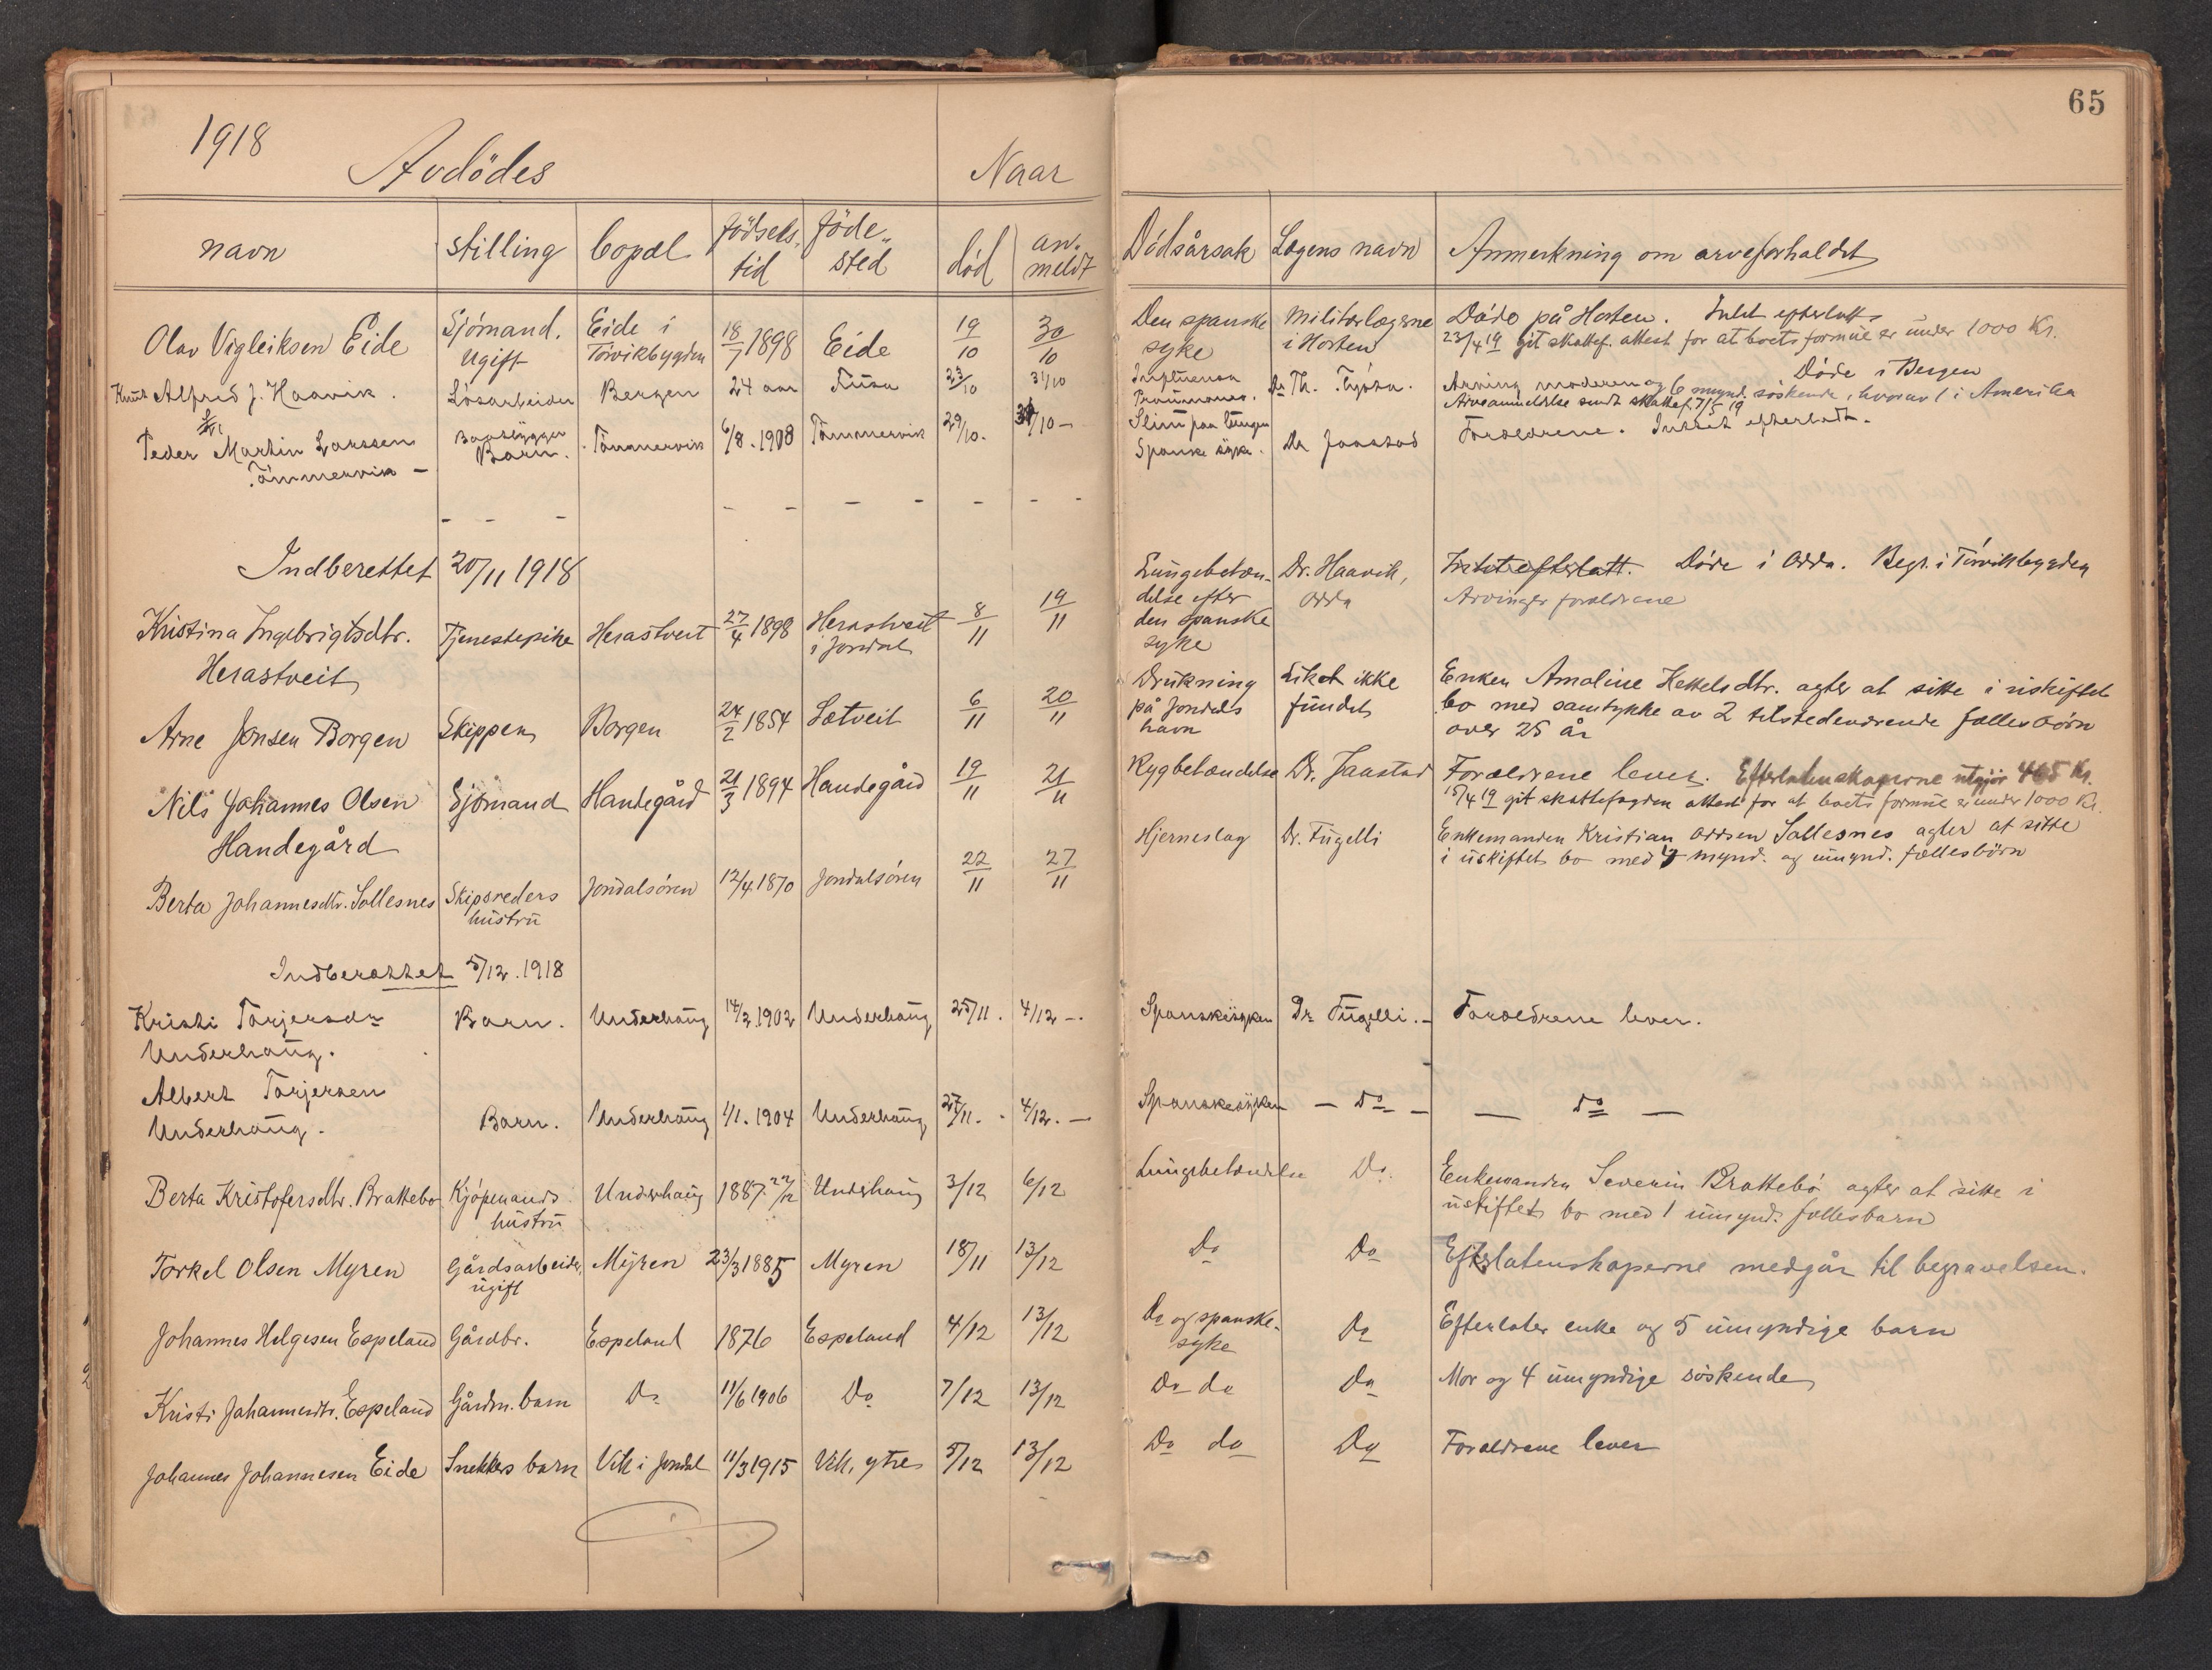 65
1918
Avdödes
Naar
navn
stilling
bopæl
födsels-tid
föde-sted
död
an-meldt
Dödsårsak
Lægens navn
Anmerkning om arveforholdet
Olav Vigleiksen Eide
Sjömand. ugift
Eide i Törvikbygden
18/7 1898
Eide
19/10
30/10
Den spanske syke
Militærlægerne i Horten
Döde på Horten. Intet efterlatt
23/4 19 git skattef. attest for at boets formue er under 1000 Kr.
Knut Alfred J. Haavik.
Lösarbeider
Bergen
24 aar
Fusa
23/10
31/10
Influensa
Dr Th.
Döde i Bergen
Arving moderen og 6 mynd. söskende, hvorav 1 i Amerika
Arveanmeldelse sendt skattef. 7/5 19
Peder Martin Larssen
Tömmervik -
Baatbygger Barn.
Tömmervik
6/8. 1908
Tömmervik
29/10.
31/10 -
Slim paa lungen
Spanske syke.
Dr Jaastad
Foreldrene. Intet efterladt.
Indberettet 20/11 1918
Kristina Ingebrigtsdtr.
Herastveit
Tjenestepike
Herastveit
27/4 1898
Herastveit i Jondal
8/11
19/11
Lungebetæn-
delse efter
den spanske
syke
Dr. Haavik,
Odda
Intet efterlatt. Döde i Odda. Begr. i Törvikbygden
Arvinger foreldrene
Arne Jonsen Borgen
Skipper
Borgen
24/2 1854
Sætveit
6/11
20/11
Drukning
på Jondals
havn
Liket ikke
fundet
Enken Amaline Hettelsdtr. agter at sitte i uskiftet
bo med samtykke av 2 tilstedeværende fællesbörn
over 25 år
Nils Johannes Olsen
Handegård
Sjömand
Handegård
21/3 1894
Handegård
19/11
21/11
Rygbetændelse
Dr. Jaastad
Foreldrene lever. Efterlatenskaperne utgjör 465 Kr.
15/4 19 git skattefogden attest for at boets formue er under 1000 Kr.
Berta Johannesdtr. Sollesnes
Skipsreders hustru
Jondalsören
12/4 1870
Jondalsören
22/11
27/11
Hjerneslag
Dr. Fugelli
Enkemanden Kristian Oddsen Sollesnes agter at sitte
i uskiftet bo med 7 mynd. og umynd. fællesbörn
Indberettet 5/12. 1918
Kristi Torjersdr
Underhaug.
Barn.
Underhaug
14/2. 1902
Underhaug
25/11.
4/12 -.
Spanskesyken
Dr Fugelli. -
Foreldrene lever.
Albert Torjersen
Underhaug.
Barn.
Underhaug
1/1. 1904
Underhaug
27/11.
4/12. -
Spanskesyken
- Do -
- do -
Berta Kristofersdtr. Brattebö
Kjöpmands hustru
Underhaug
1887. 22/12
Underhaug
3/12
6/12
Lungebetændelse
Do.
Enkemanden Severin Brattebö agter at sitte i
uskiftet bo med 1 umynd. fællesbarn
Torkel Olsen Myren
Gårdsarbeider, ugift
Myren
23/3 1885
Myren
18/11
13/12
Do
Do
Efterlatenskaperne medgår til begravelsen.
Johannes Helgesen Espeland
Gårdbr.
Espeland
1876
Espeland
4/12
13/12
Do og spanske-
syke
Do
Efterlater enke og 5 umyndige barn
Kristi Johannesdtr. Espeland
Gårdm. barn
Do
11/6 1906
Do
7/12
13/12
Do do
Do
Mor og 4 umyndige söskende
Johannes Johannesen Eide
Snekkers barn
Vik i Jondal
11/3 1915
Vik, ytre
5/12
13/12
Do do
Do
Foreldrene lever